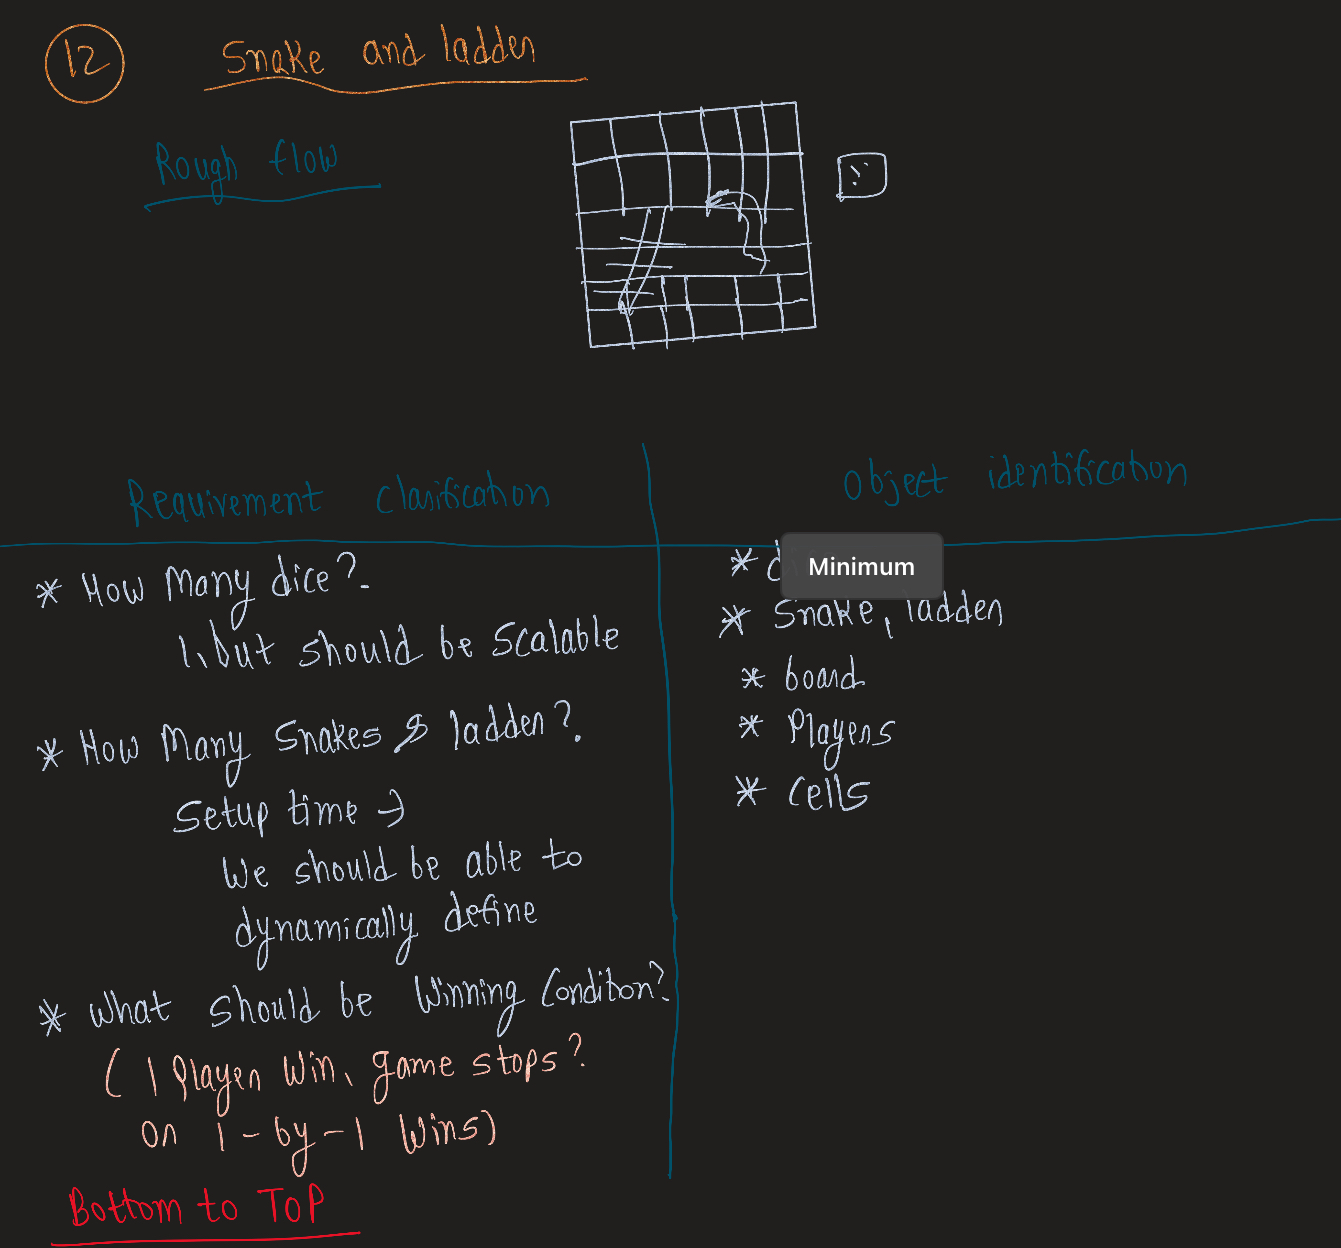 12
Snake and ladder
Rough flow
Requirement clarification
* How Many dice?
1, but should be Scalable
* How Many Snakes & ladder?
Setup time →
We should be able to
dynamically define
* What should be Winning Condition?
( 1 Player Win, game stops?
or 1-by-1 Wins)
Bottom to Top
Object identification
*
Minimum
* Snake, ladder
* board
* Players
* Cells